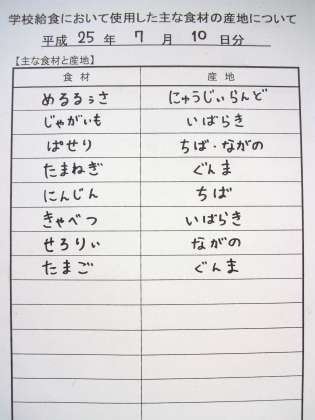 学校給食において使用した主な食材の産地について
平成 25 年 7 月 10 日分
【主な食材と産地】
食材 産地
めるるぅさ にゅうじぃらんど
じゃがぃも いばらき
ぱせり ちば・ながの
たまねぎ ぐんま
にんじん ちば
きゃべつ いばらき
せろりぃ ながの
たまご ぐんま